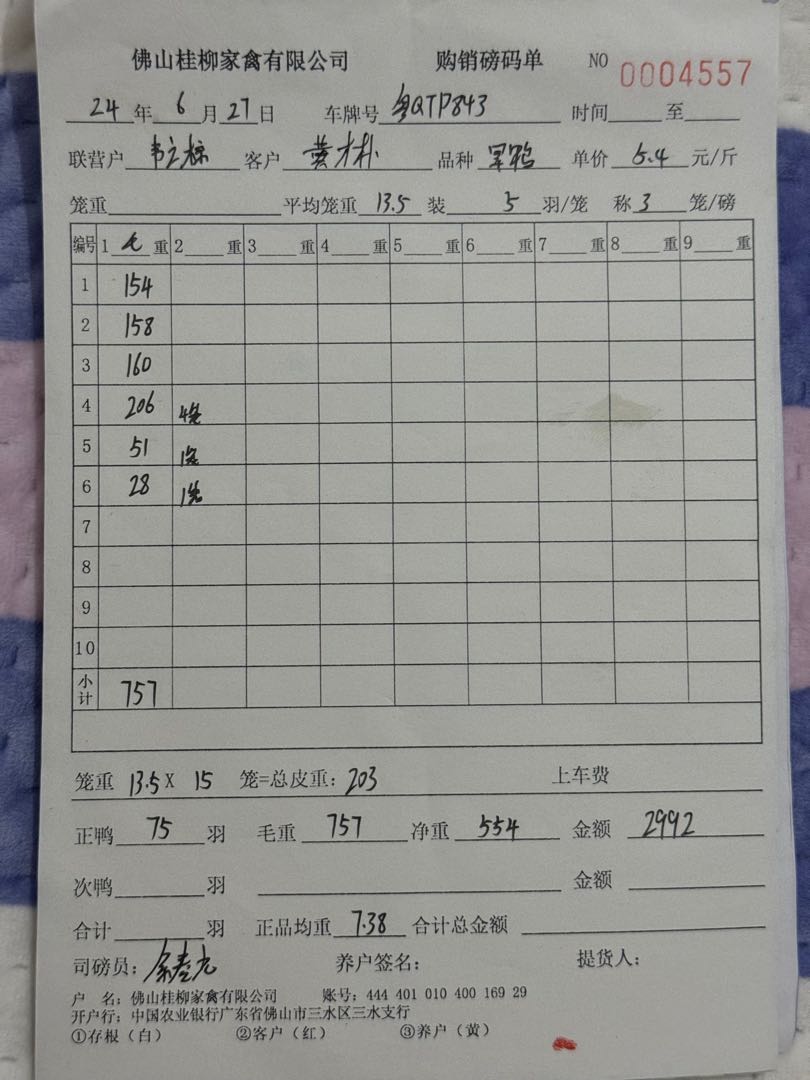 佛山桂柳家禽有限公司 购销磅码单 NO 0004557
24年6月27日 车牌号 粤QTP843 时间 至
联营户 客户 黄才朴 品种 单价 5.4 元/斤
笼重 平均笼重 13.5 装 5 羽/笼 称 3 笼/磅
编号 1 毛 重 2 重 3 重 4 重 5 重 6 重 7 重 8 重 9 重
1 154
2 158
3 160
4 206 4笼
5 51 1笼
6 28 1笼
7
8
9
10
小计 757
笼重 13.5 X 15 笼=总皮重: 203 上车费
正鸭 75 羽 毛重 757 净重 554 金额 2992
次鸭 羽 金额
合计 羽 正品均重 7.38 合计总金额
司磅员: 养户签名: 提货人:
户 名: 佛山桂柳家禽有限公司 账号: 444 401 010 400 169 29
开户行: 中国农业银行广东省佛山市三水区三水支行
①存根（白） ②客户（红） ③养户（黄）